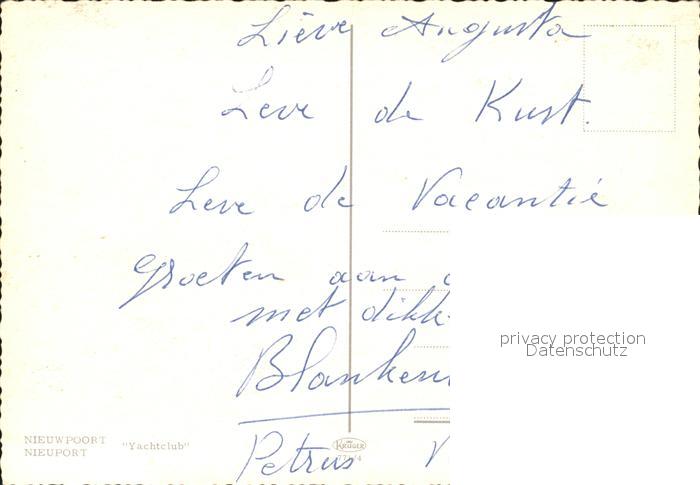 Lieve Augusta
Leve de Kust.
Leve de Vacantie
Groeten aan
met dikk
Blanken
Petrus V
privacy protection
Datenschutz
NIEUWPOORT
NIEUPORT
"Yachtclub"
KRÜGER